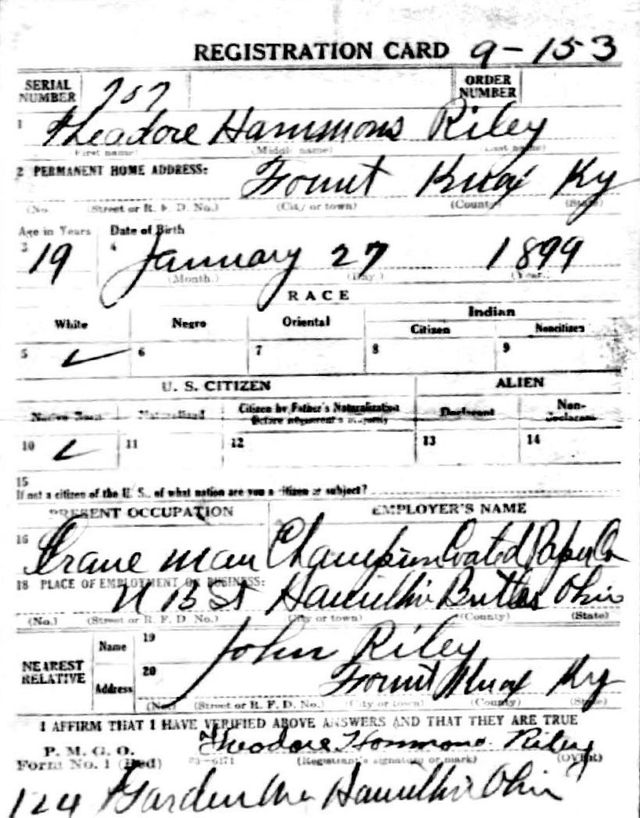 REGISTRATION CARD 9-153
SERIAL NUMBER 757 ORDER NUMBER
1 Theadore Hammons Riley
(First name) (Middle name) (Last name)
2 PERMANENT HOME ADDRESS: Fount Knox Ky
(No. (Street or R. F. D. No.) (City or town) (County) (State)
Age in Years Date of Birth
3 19 4 January 27 1899
(Month.) (Day.) (Year.
RACE
White Negro Oriental Indian
Citizen Noncitizen
5 ✓ 6 7 8 9
U. S. CITIZEN ALIEN
Native Born Naturalized Citizen by Father's Naturalization Before Registrant's Majority Declarant Non-Declarant
10 ✓ 11 12 13 14
15
If not a citizen of the U. S., of what nation are you a citizen or subject?
PRESENT OCCUPATION EMPLOYER'S NAME
16 Crane man Champion Coated Paper Co
18 PLACE OF EMPLOYMENT OR BUSINESS:
N B St Hamilton Butler Ohio
(No.) (Street or R. F. D. No.) (City or town) (County) (State)
NEAREST RELATIVE Name 19 John Riley
Address 20 Fount Knox Ky
(No.) (Street or R. F. D. No.) (City or town) (County) (State)
I AFFIRM THAT I HAVE VERIFIED ABOVE ANSWERS AND THAT THEY ARE TRUE
P. M. G. O. Theodore Hommons Riley
Form No. 1 (Red) (Registrant's signature or mark) (OVER)
124 Garden Ave Hamilton Ohio